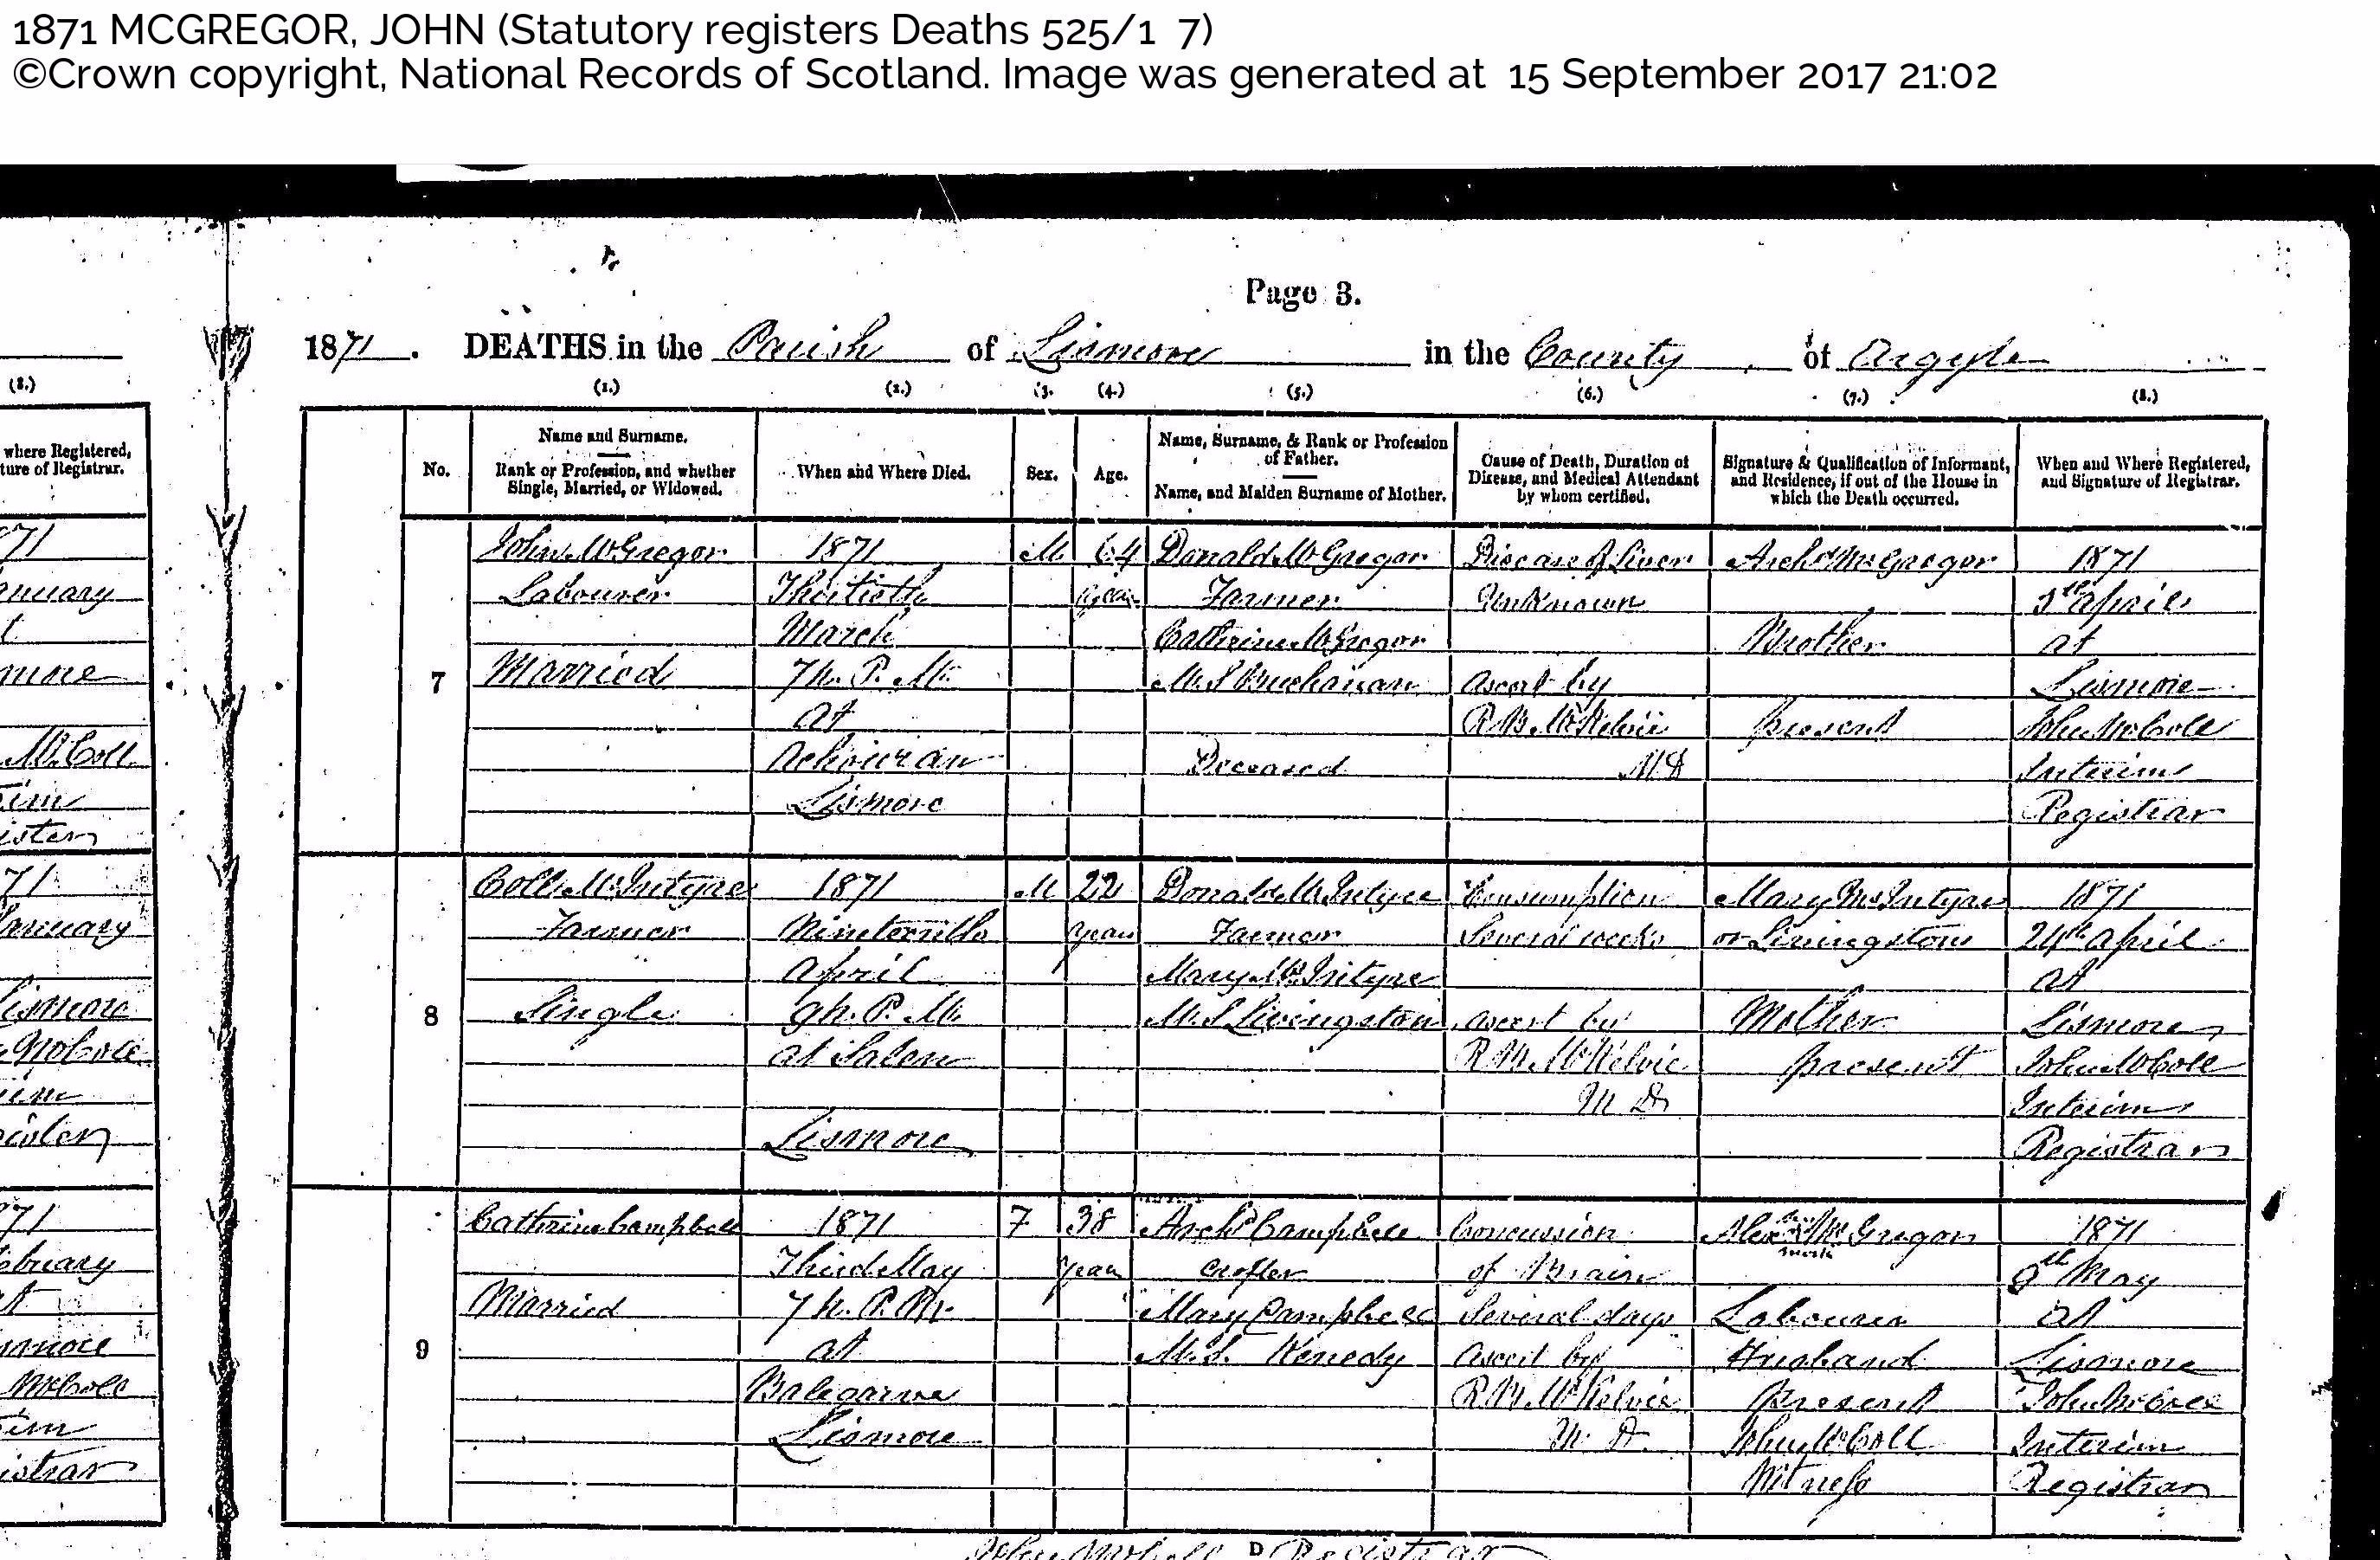 1871 MCGREGOR, JOHN (Statutory registers Deaths 525/1 7)
©Crown copyright, National Records of Scotland. Image was generated at 15 September 2017 21:02
Page 3.
1871. DEATHS in the Parish of Lismore in the County of Argyle
(8.)
(1.) (2.) (3. (4.) (5.) (6.) (7.) (8.)
where Registered,
ture of Registrar.
No.
Name and Surname.
Rank or Profession, and whether
Single, Married, or Widowed.
When and Where Died.
Sex.
Age.
Name, Surname, & Rank or Profession
of Father.
Name, and Maiden Surname of Mother.
Cause of Death, Duration of
Disease, and Medical Attendant
by whom certified.
Signature & Qualification of Informant,
and Residence, if out of the House in
which the Death occurred.
When and Where Registered,
and Signature of Registrar.
71
anuary
more
McColl
im
ister
7
John McGregor
Labourer
Married
1871
Thirtieth
March
7h. P. M.
at
Achouran
Lismore
M
64
years
Donald McGregor
Farmer
Catherine McGregor
M.S Buchanan
Deceased
Disease of Liver
Unknown
Ascert by
R B. McKelvie
MD
Archd McGregor
Brother
present
1871
April
at
Lismore
John McColl
Interim
Registrar
71
anuary
ismore
McColl
im
ister
8
Coll McIntyre
Farmer
Single
1871
Nineteenth
April
9h. P. M.
at Salen
Lismore
M
22
years
Donald McIntyre
Farmer
Mary McIntyre
M.S Livingston
Consumption
Several weeks
Ascert by
R M. McKelvie
M D
Mary McIntyre
or Livingstone
Mother
present
1871
24th April
at
Lismore
John McColl
Interim
Registrar
71
bruary
at
smore
McColl
im
istrar
9
Catherine Campbell
Married
1871
Third May
7h. P. M.
at
Balegarve
Lismore
F
38
years
Archd Campbell
Crofter
Mary Campbell
M.S. Kenedy
Concussion
of Brain
Several days
Ascert by
R M. McKelvie
M. D.
Alex McGregor
mark
Labourer
Husband
present
John McColl
Witness
1871
May
at
Lismore
John McColl
Interim
Registrar
John McColl D Registrar